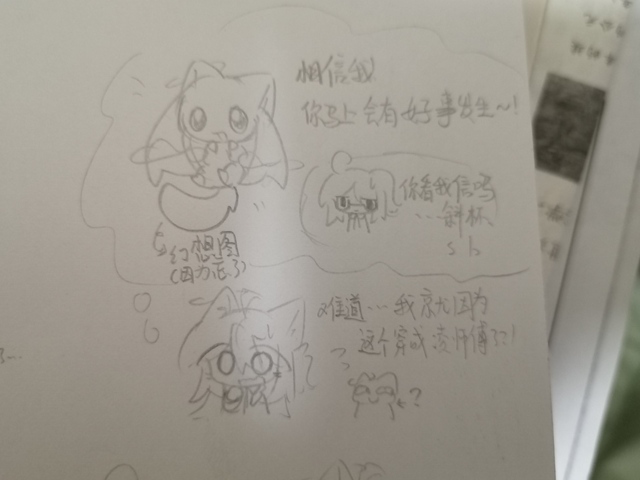 相信我
你马上会有好事发生~!
你看我信吗
...斜杯
s b
幻想图
(因为忘了)
难道...我就因为
这个穿成凌师傅了?!
?